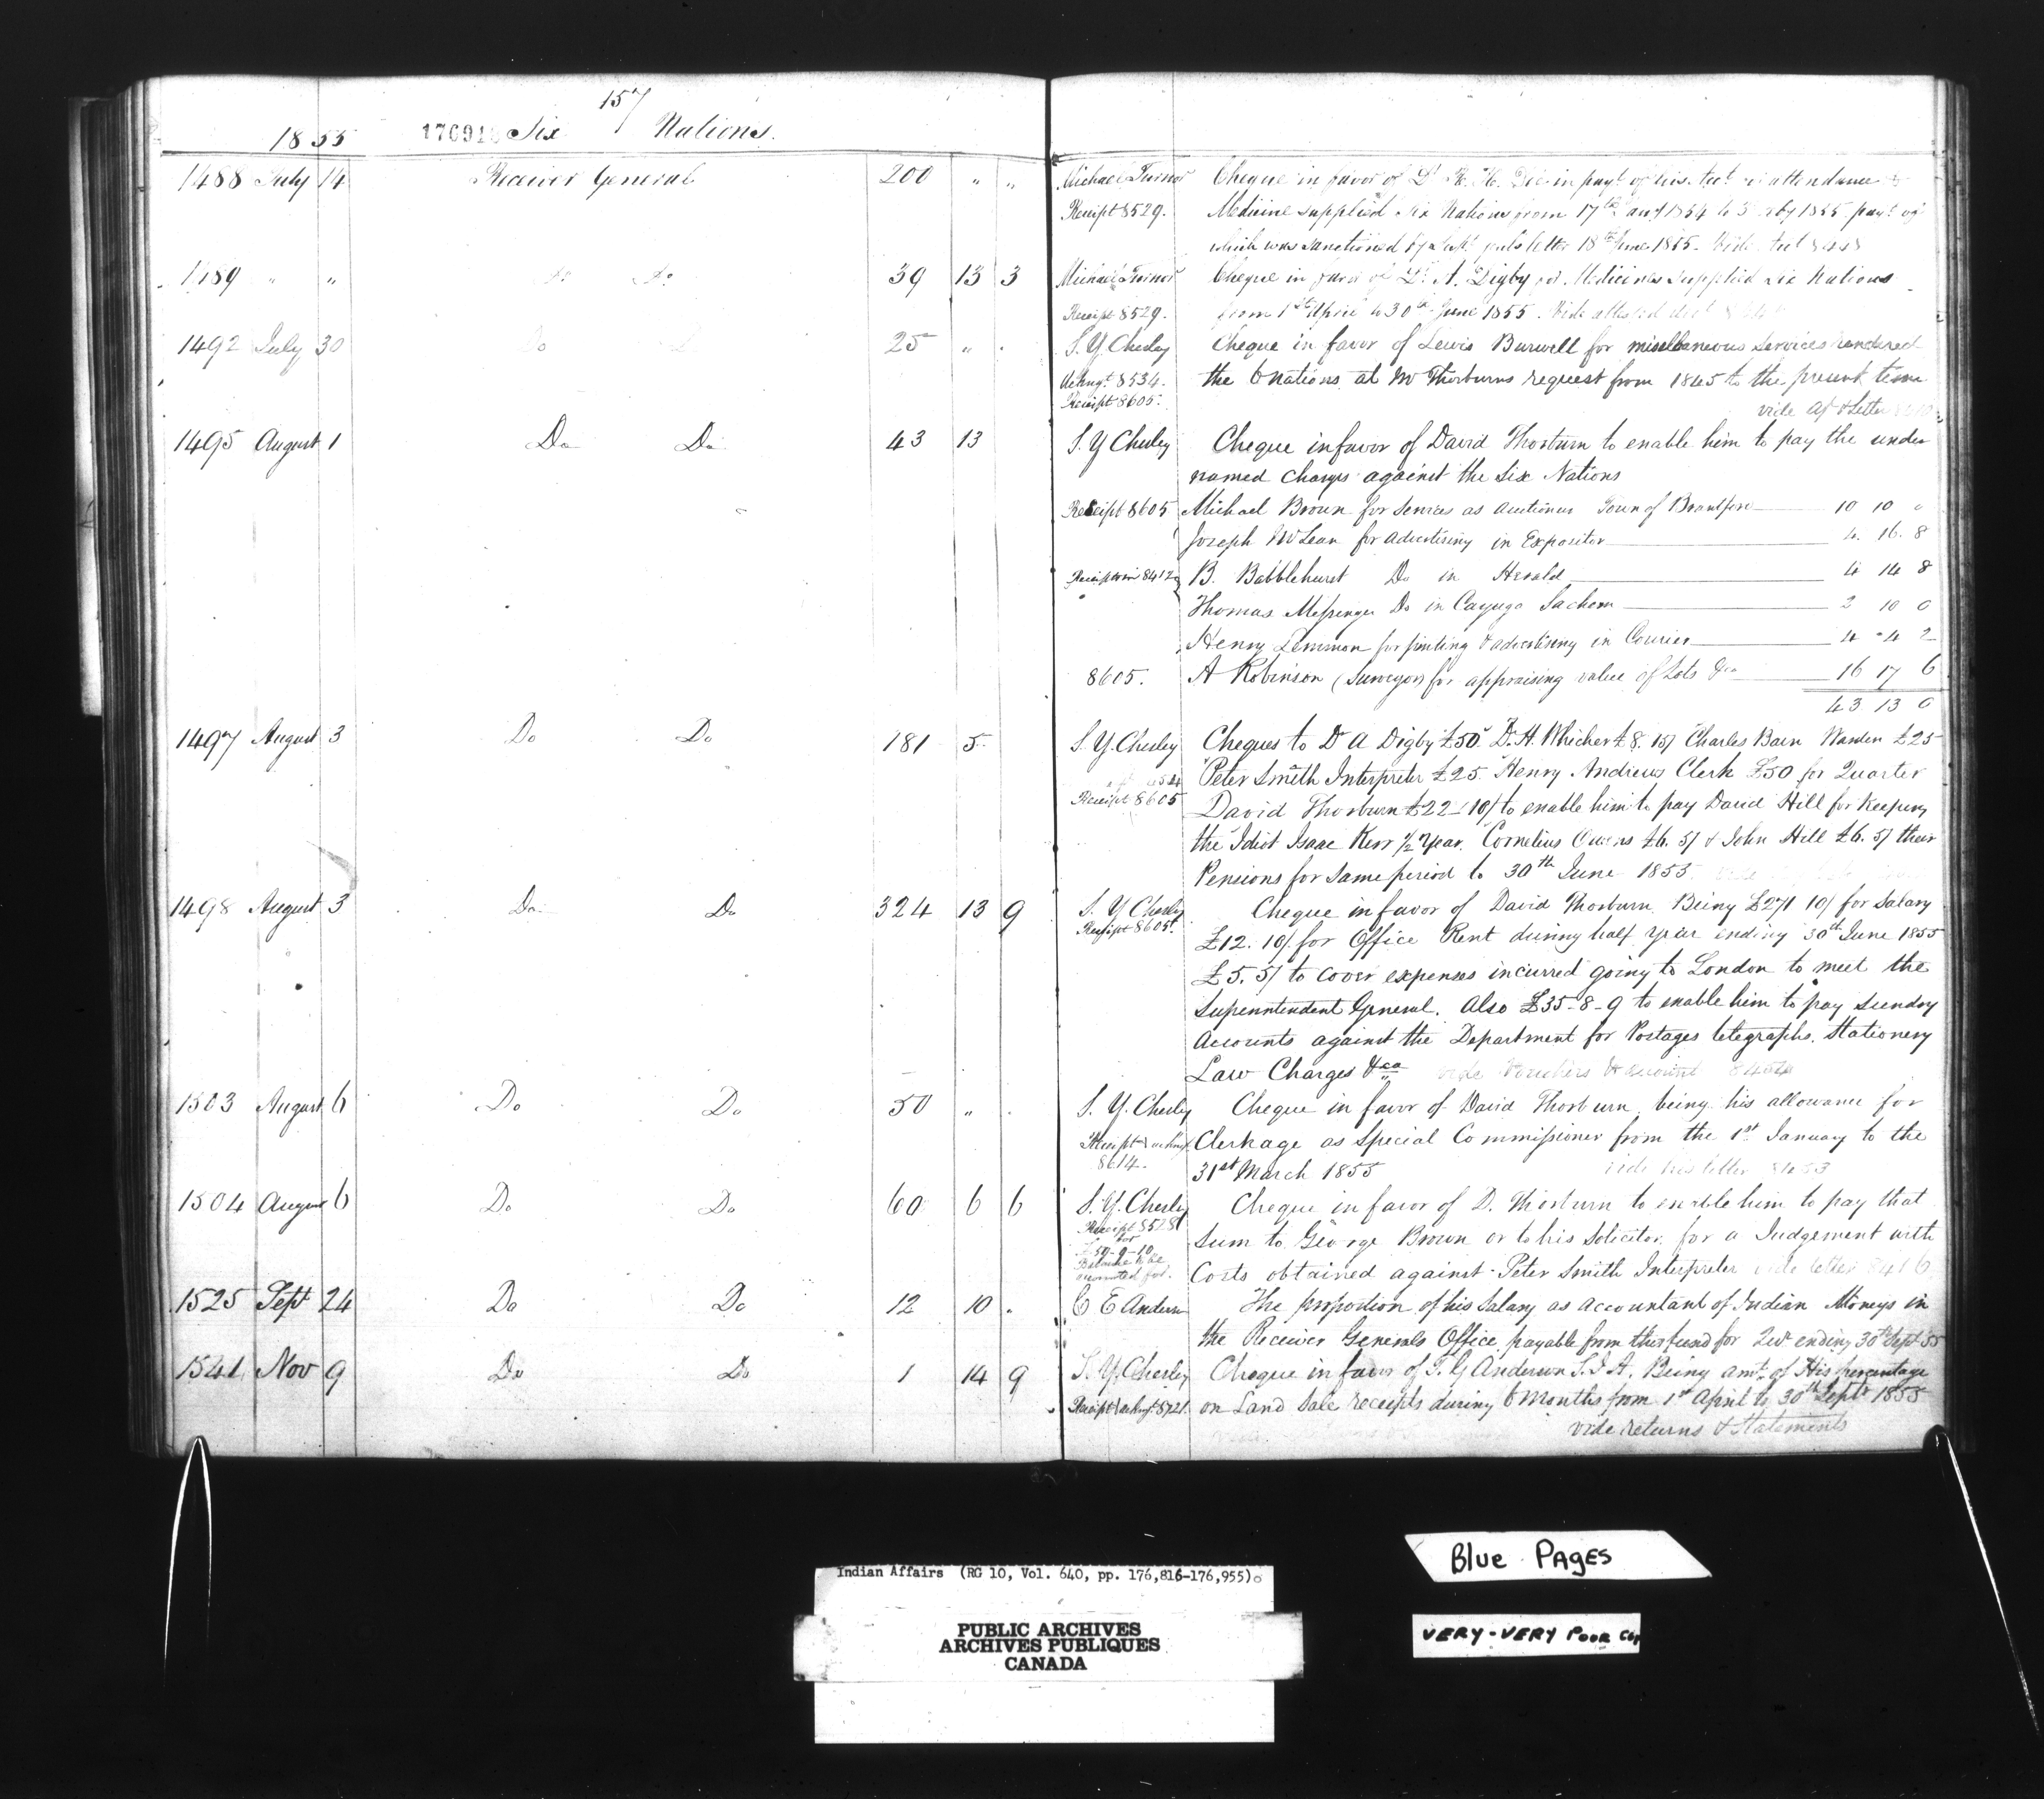 157
1855 Six Nations.
1488 July 14 Receiver General 200 " " Michael Turnor Cheque in favor of Dr R. H. Dee in payt of his Act attendance &
Receipt 8529. Medicine supplied Six Nations from 17th 1854 to 1855 payt of
which was sanctioned by letter 18th June 1855. Vide Act 8448
1489 " " Do Do 39 13 3 Michael Turnor Cheque in favor of Dr A. Digby Medicines supplied Six Nations
Receipt 8529. from 1st April to 30th June 1855. Vide attested
1492 July 30 Do 25 " . S. Y. Chesley Cheque in favor of Lewis Burwell for miscellaneous services rendered
Ackngt 8534. the 6 Nations at Mr Thorburns request from 1845 to the present time
Receipt 8605. vide Letter
1495 August 1 Do Do 43 13 S. Y Chesley Cheque in favor of David Thorburn to enable him to pay the under
named Charges against the Six Nations
Receipt 8605 Michael Broun for Services as auctioneer Town of Brantford 10 10 0
Joseph McLean for advertising in Expositor 4. 16. 8
8412 B. Babblehurst Do in Herald 4 14 8
Thomas Messenger Do in Cayuga Sachem 2 10 0
Henry Lemmon for printing & advertising in Courier 4 4 2
8605. A Robinson (Surveyor) for appraising value of Lots &ca 16 17 6
43 13 0
1497 August 3 Do Do 181 5 S. Y. Chesley Cheques to Dr A Digby £50. Dr. H. Whicher £8. 15/ Charles Bain Warden £25
Peter Smith Interpreter £25. Henry Andrews Clerk £50 for Quarter
Receipt 8605 David Thorburn £22-10/ to enable him to pay David Hill for Keeping
the Idiot Isaac Kerr 1/2 Year. Cornelius Owens £6. 5/ & John Hill £6. 5/ their
Pensions for same period to 30th June 1855.
1498 August 3 Do Do 324 13 9 S. Y Chesley Cheque in favor of David Thorburn. Being £271 10/ for Salary
Receipt 8605. £12. 10/. for Office Rent during half year ending 30th June 1855
£5. 5/ to cover expenses incurred going to London to meet the
Superintendent General. Also £35-8-9 to enable him to pay Sundry
Accounts against the Department for Postages telegraphs. Stationery
Law Charges &ca vide Vouchers & account
1503 August 6 Do Do 50 " . S. Y. Chesley Cheque in favor of David Thorburn. being his allowance for
Receipt Clerkage as Special Commissioner from the 1st January to the
8614. 31st March 1855 vide his letter 8453
1504 August 6 Do Do 60 6 6 S. Y. Chesley Cheque in favor of D. Thorburn to enable him to pay that
Receipt 8528
for sum to George Brown or to his Solicitor, for a Judgement with
£59-9-10
Balance to be
accounted for. Costs obtained against Peter Smith Interpreter vide letter 8416
1525 Sept 24 Do Do 12 10 . C E Anderson The proportion of his Salary as accountant of Indian Moneys in
the Receiver Generals Office payable from this fund for Qur ending 30th Sept 55
1541 Nov 9 Do Do 1 14 9 S. Y. Chesley Cheque in favor of T. G Anderson S. I A. Being amt. of His percentage
Receipt 8721. on Land Sale receipts during 6 months from 1st April to 30th Sept 1855
vide returns & Statements
Blue Pages
Indian Affairs (RG 10, Vol. 640, pp. 176,816-176,955)
VERY-VERY POOR
PUBLIC ARCHIVES
ARCHIVES PUBLIQUES
CANADA